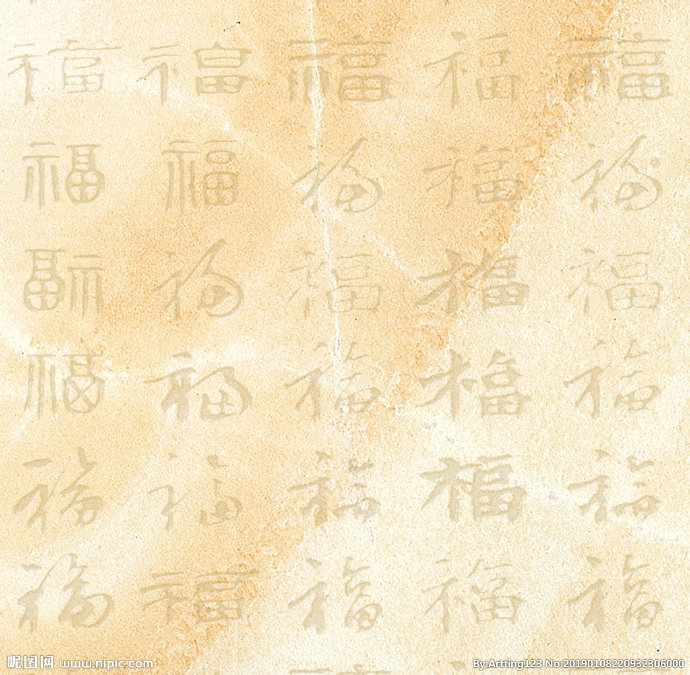 福 福 福 福 福
福 福 福 福 福
福 福 福 福 福
福 福 福 福 福
福 福 福 福 福
福 福 福 福 福
昵图网 www.nipic.com
By:Artting123 No:20190108220932306000